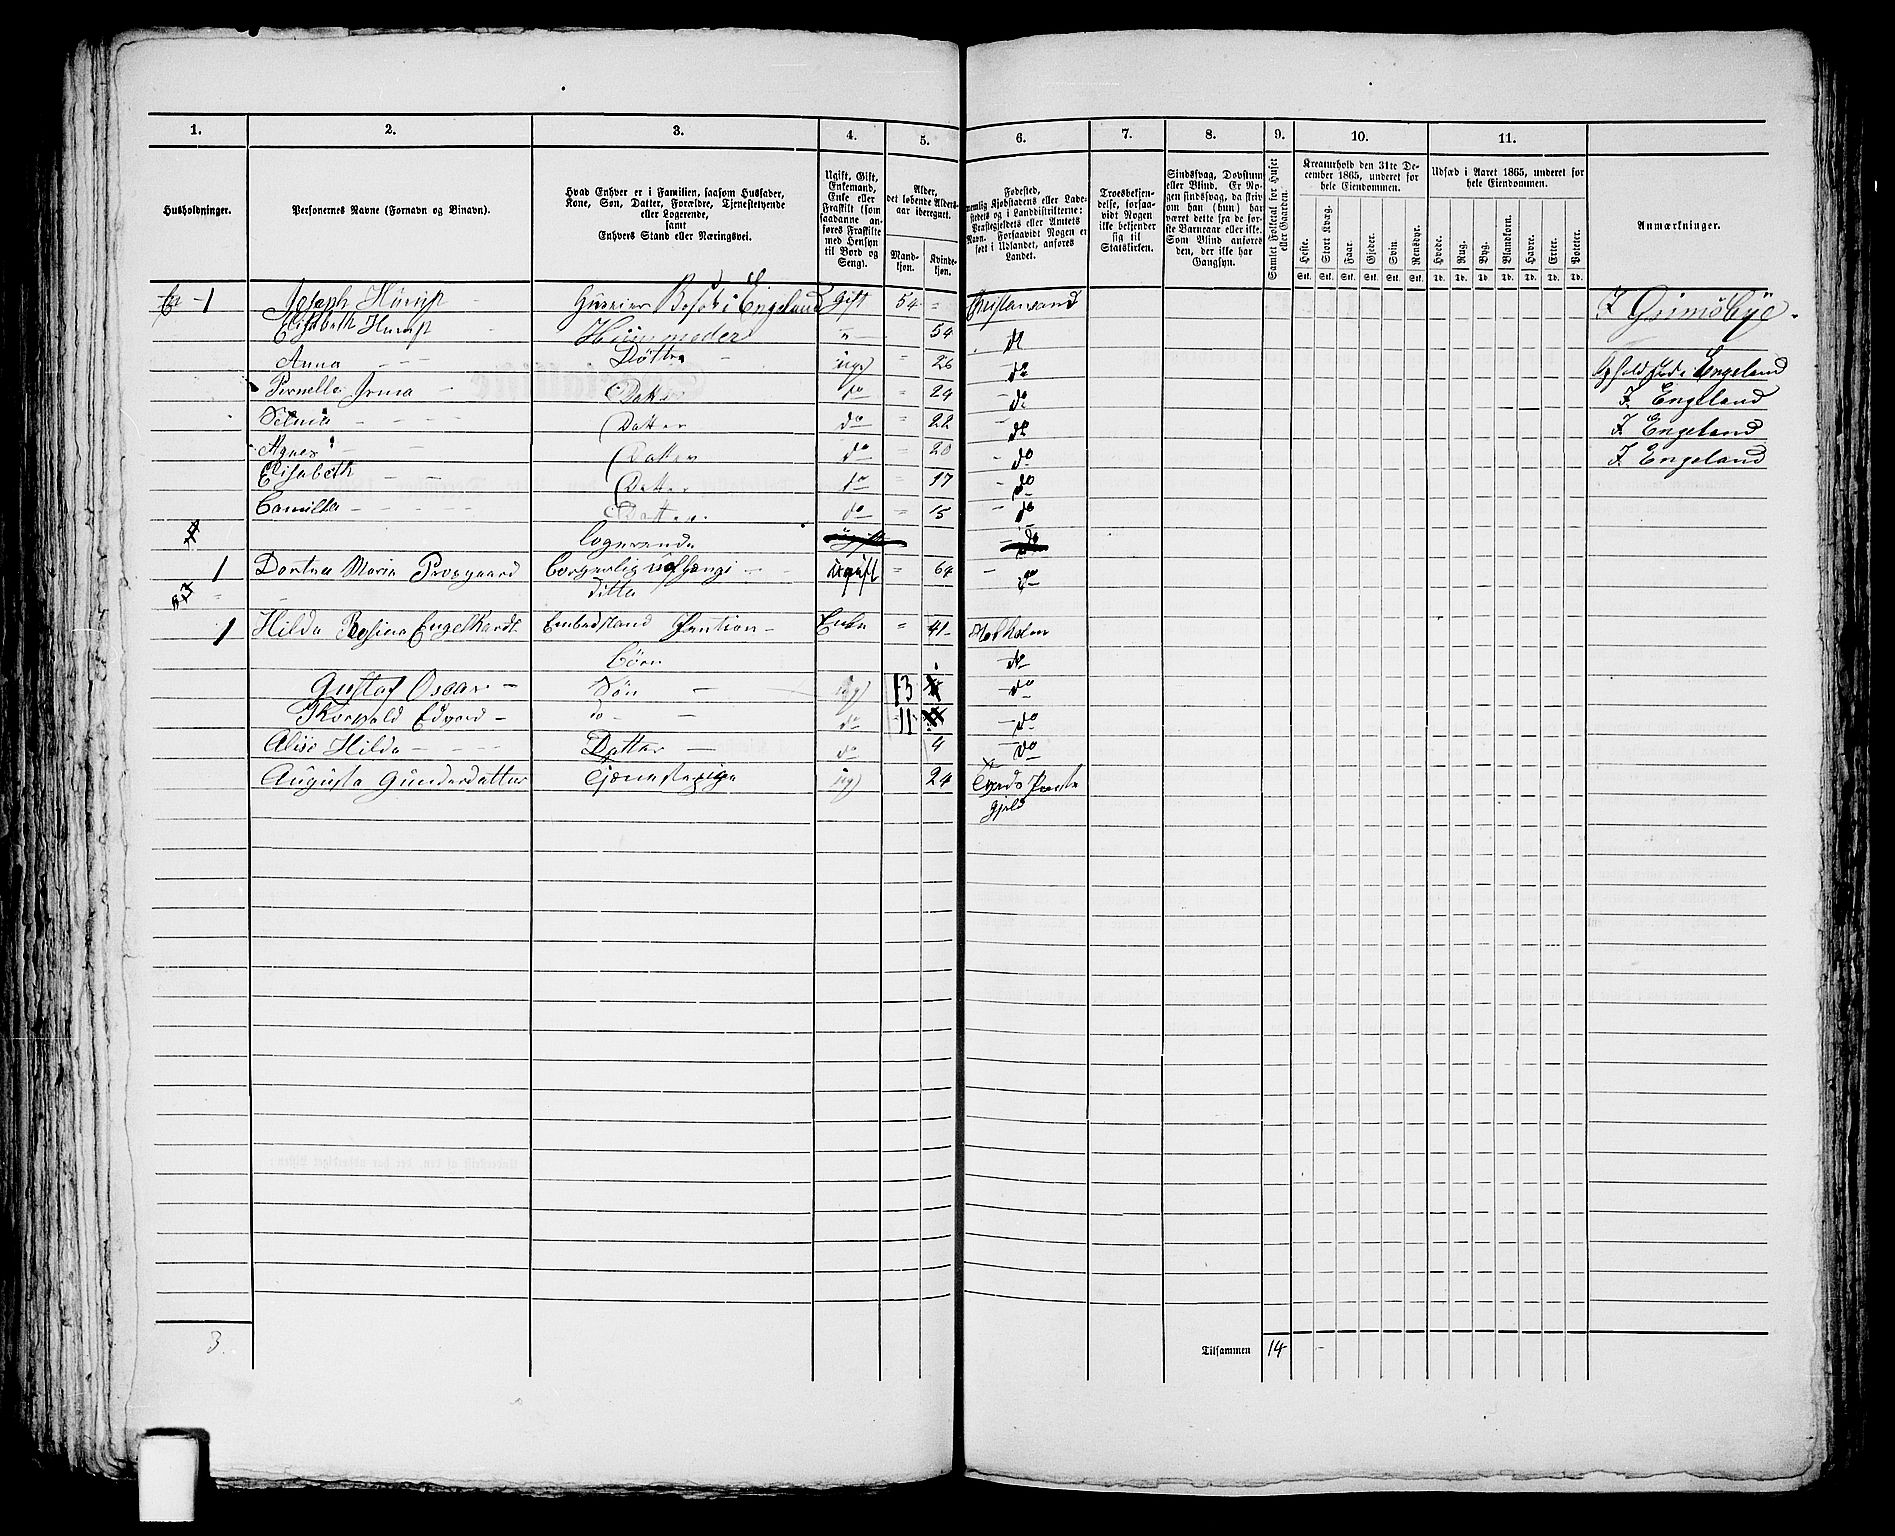 1. 2. 3. 4. 5. 6. 7. 8. 9. 10. 11.
Husholdninger.
Personernes Navne (Fornavn og Binavn).
Hvad Enhver er i Familien, saasom Husfader,
Kone, Søn, Datter, Forældre, Tjenestetyende
eller Logerende,
samt
Enhvers Stand eller Næringsvei.
Ugift, Gift,
Enkemand,
Enke eller
Fraskilt (som
saadanne an-
føres Fraskilte
med Hensyn
til Bord og
Seng).
Alder,
det løbende Alders-
aar iberegnet.
Mand-
kjøn.
Kvinde-
kjøn.
Fødested,
nemlig Kjøbstadens eller Lade-
stedets og i Landdistrikterne:
Præstegjeldets eller Amtets
Navn. Forsaavidt Nogen er
født i Udlandet, anføres
Landet.
Troesbekjen-
delse, forsaa-
vidt Nogen
ikke bekjender
sig til
Statskirken.
Sindssvag, Døvstum
eller Blind. Er No-
gen sindssvag, da skriv
om han (hun) har
været dette fra de før-
ste Barneaar eller ikke.
Som Blind anføres
den, der ikke har
Gangsyn.
Samlet Folketal for Huset
eller Gaarden.
Kreaturhold den 31te De-
cember 1865, underet for
hele Eiendommen.
Heste. Stort Kvæg. Faar. Gjeder. Svin. Rensdyr.
Stk. Stk. Stk. Stk. Stk. Stk.
Udsæd i Aaret 1865, underet for
hele Eiendommen.
Hvede. Rug. Byg. Blandkorn. Havre. Erter. Poteter.
Td. Td. Td. Td. Td. Td. Td.
Anmærkninger.
1 Joseph Hürup i Engeland Gift 54 " Cristiansand
Elisabeth Hürup Huusmoder " 54 do
Anna - - Døttre ug) " 26 do Engeland
Pernella - Datter do " 24 do I Engeland
- Datter do " 22 do I Engeland
Agnes - Datter do " 20 do I Engeland
Elisabeth - - Datter do " 17 do
Camilla - - - - Datter do " 15 do
4 Logerende ugift do
1 Maria ugift " 64 - do
ditto
1 Hilda Engelhardt Pention - Enke " 41
Börn do
Gustaf Oscar - Sön - ug) 13 do
Edvard - do - do 11 do
Alise Hilda - - - Datter - do 4 do
Augusta Gundersdatter Tjenestepige ug) 24
gjeld
3. Tilsammen 14